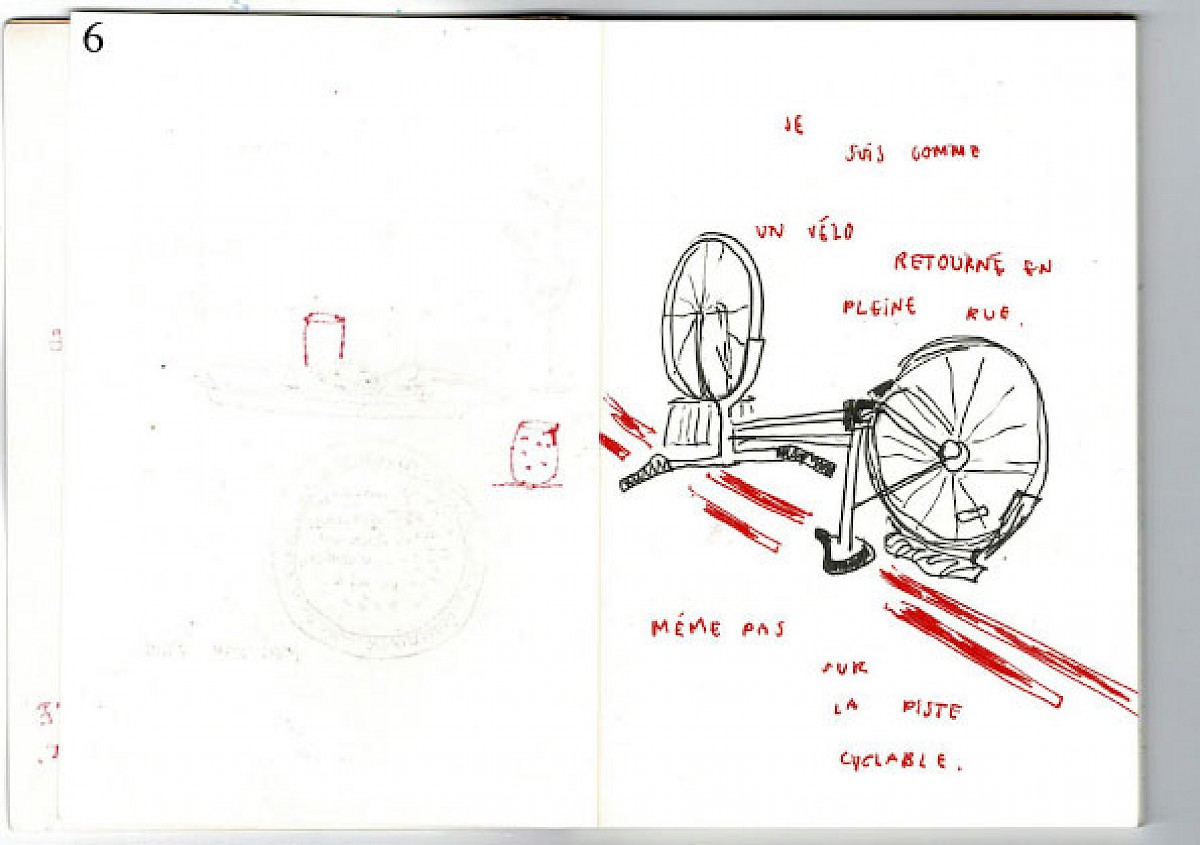 6
JE
SUIS COMME
UN VÉLO
RETOURNÉ EN
PLEINE RUE.
MÉME PAS
SUR
LA PISTE
CYCLABLE.